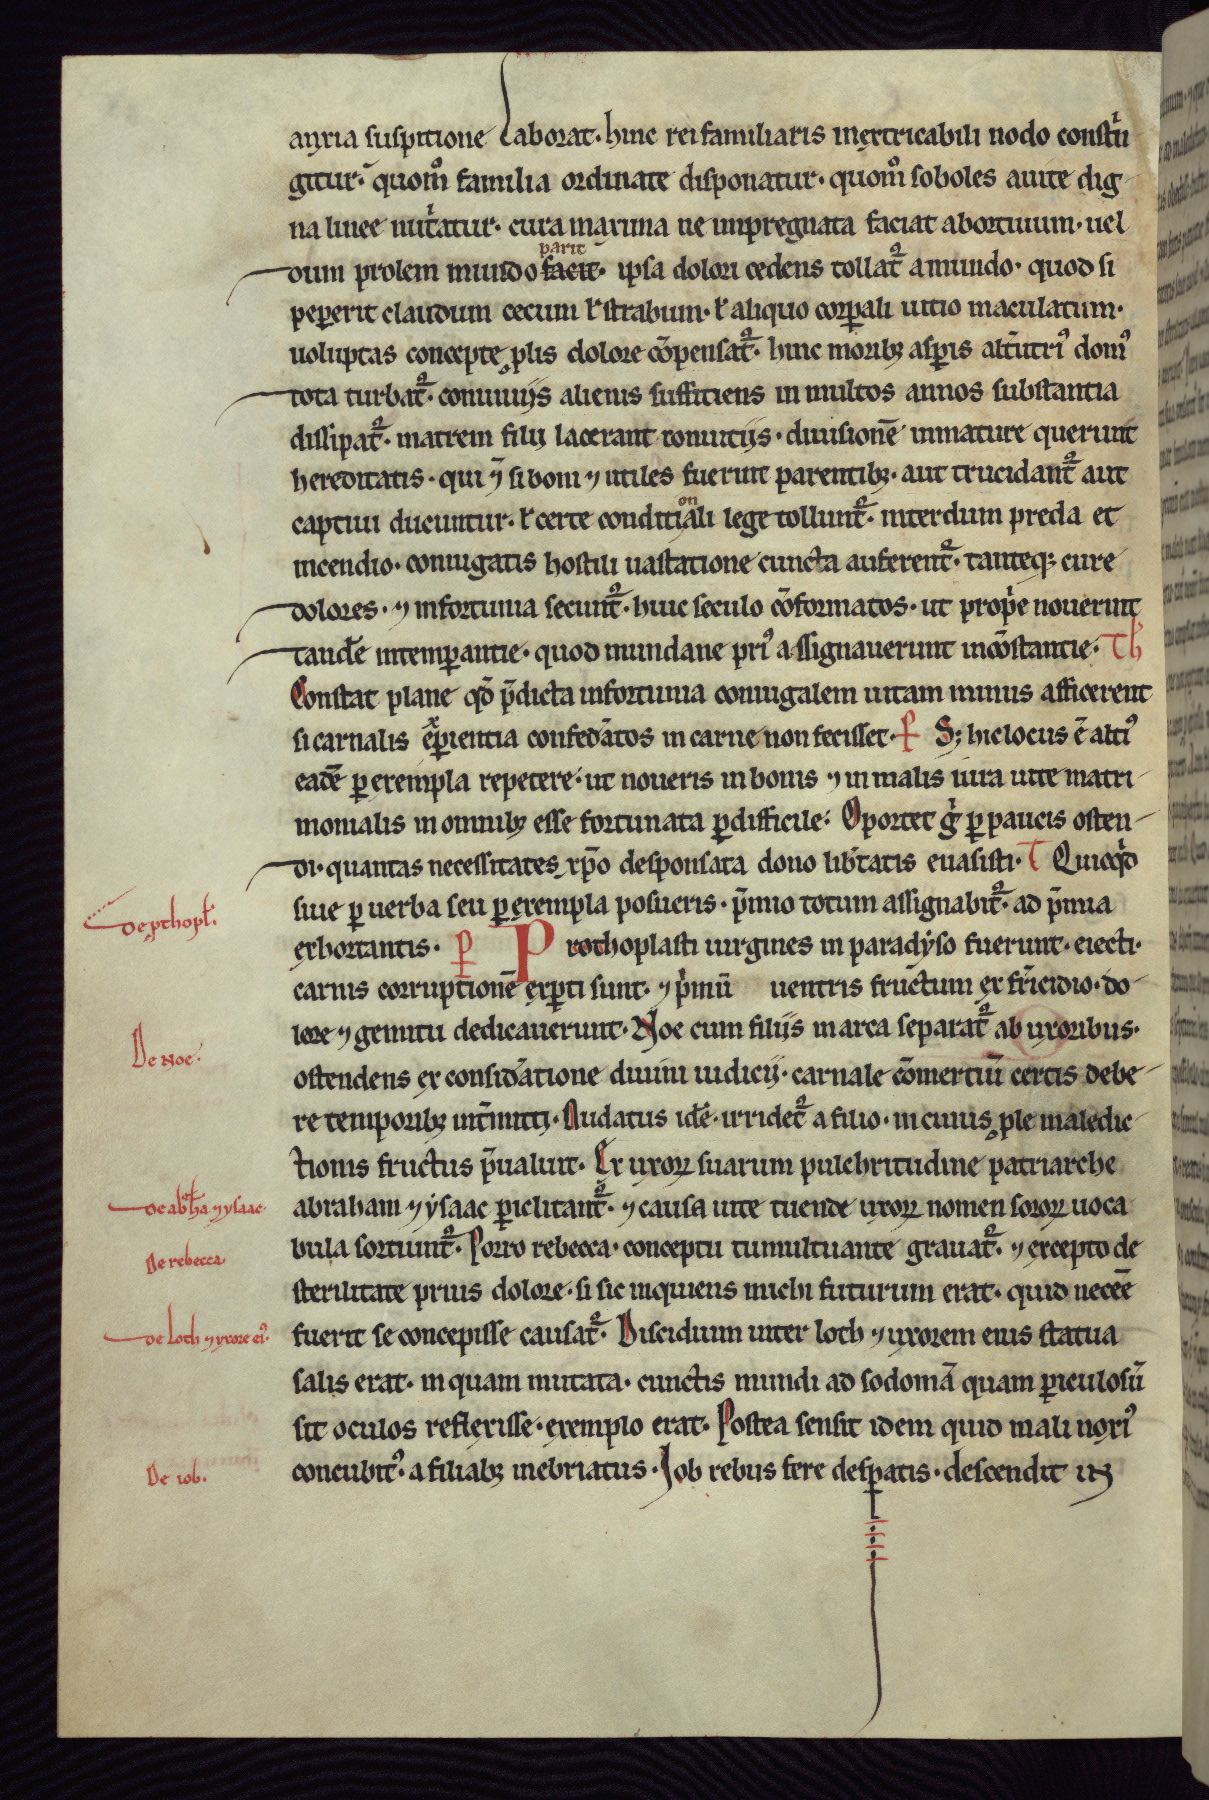 anxia suspitione laborat. hinc rei familiaris inextricabili nodo constͥn
gitur. quom̊ familia ordinate disponatur. quom̊ soboles auite dig
na linee nutͥatur. cura maxima ne inpregnata faciat abortiuum. uel
parit
dum prolem mundo facit. ipsa dolori cedens tollat᷑ a mundo. quod si
pep̱erit claudum cecum ł strabum. ł aliquo corp̱ali uitio maculatum.
uoluptas concepte ꝓlis dolore cōpensat᷑. hinc moribꝫ asp̱is alt̄utriꝰ domꝰ
tota turbat᷑. conuiuijs alienis suffitiens in multos annos substantia
dissipat᷑. matrem filij lacerant conuitijs. diuisionē inmature querunt
hereditatis. qui ⁊̄ si boni ⁊ utiles fuerint parentibꝫ. aut trucidant᷑ aut
on
captiui ducuntur. ł certe conditiali lege tollunt᷑. interdum preda et
incendio. coniugatis hostili uastatione cuncta auferent᷑. tanteqꝫ cure
dolores. ⁊ infortunia secunt᷑. huic seculo cōformatos. ut prop̱e nouerint
tandē intemp̱antie. quod mundane priꝰ assignauerunt incōstantie. Th
Constat plane qd̄ p̄dicta infortunia coniugalem uitam minus afficerent
si carnalis exp̱ientia confed̄atos in carne non fecisset. P Sꝫ hic locus ē altiꝰ
eadē ꝑ exempla repetere. ut noueris in bonis ⁊ in malis iura uite matri
monialis in omnibꝫ esse fortunata ꝑdifficile. Oportet gͥ ꝑ paucis osten
di. quantas necessitates xp̄o desponsata dono lib̄tatis euasisti. T Quicqͥd
siue ꝑ uerba seu ꝑ exempla posueris. p̄mio totum assignabit᷑. ad p̄mia
De ꝓthopł.
exhortantis. P Prothoplasti uirgines in paradyso fuerunt. eiecti.
carnis corruptionē exp̱ti sunt. ⁊ pͥmū uentris fructum ex fr̄icidio. do
De Noe.
lore ⁊ gemitu dedicauerunt. Noe cum filijs in arca separat᷑ ab uxoribus.
ostendens ex consid̄atione diuini iudicij. carnale cōmertiū certis debe
re temporibꝫ int̄mitti. Nudatus idē. irridet᷑ a filio. in cuius ꝓle maledic
tionis fructus p̄ualuit. Ex uxoꝝ suarum pulchritudine patriarche
De abͣhā ⁊ ysaac.
abraham ⁊ ysaac ꝑiclitant᷑. ⁊ causa uite tuende uxoꝝ nomen soroꝝ uoca
De rebecca
bula sortiunt᷑. Porro rebecca. conceptu tumultuante grauat᷑. ⁊ excepto de
sterilitate prius dolore. si sic inquiens michi futurum erat. quid necēe
De Loth ⁊ uxore eiꝰ.
fuerit se concepisse causat᷑. Discidium inter loth ⁊ uxorem eius statua
salis erat. in quam mutata. cunctis mundi ad sodomā quam ꝑiculosū
sit oculos reflexisse. exemplo erat. Postea sensit idem quid mali noxiꝰ
De iob.
concubitꝰ. a filiabꝫ inebriatus. Iob rebus fere desp̱atis. descendit in